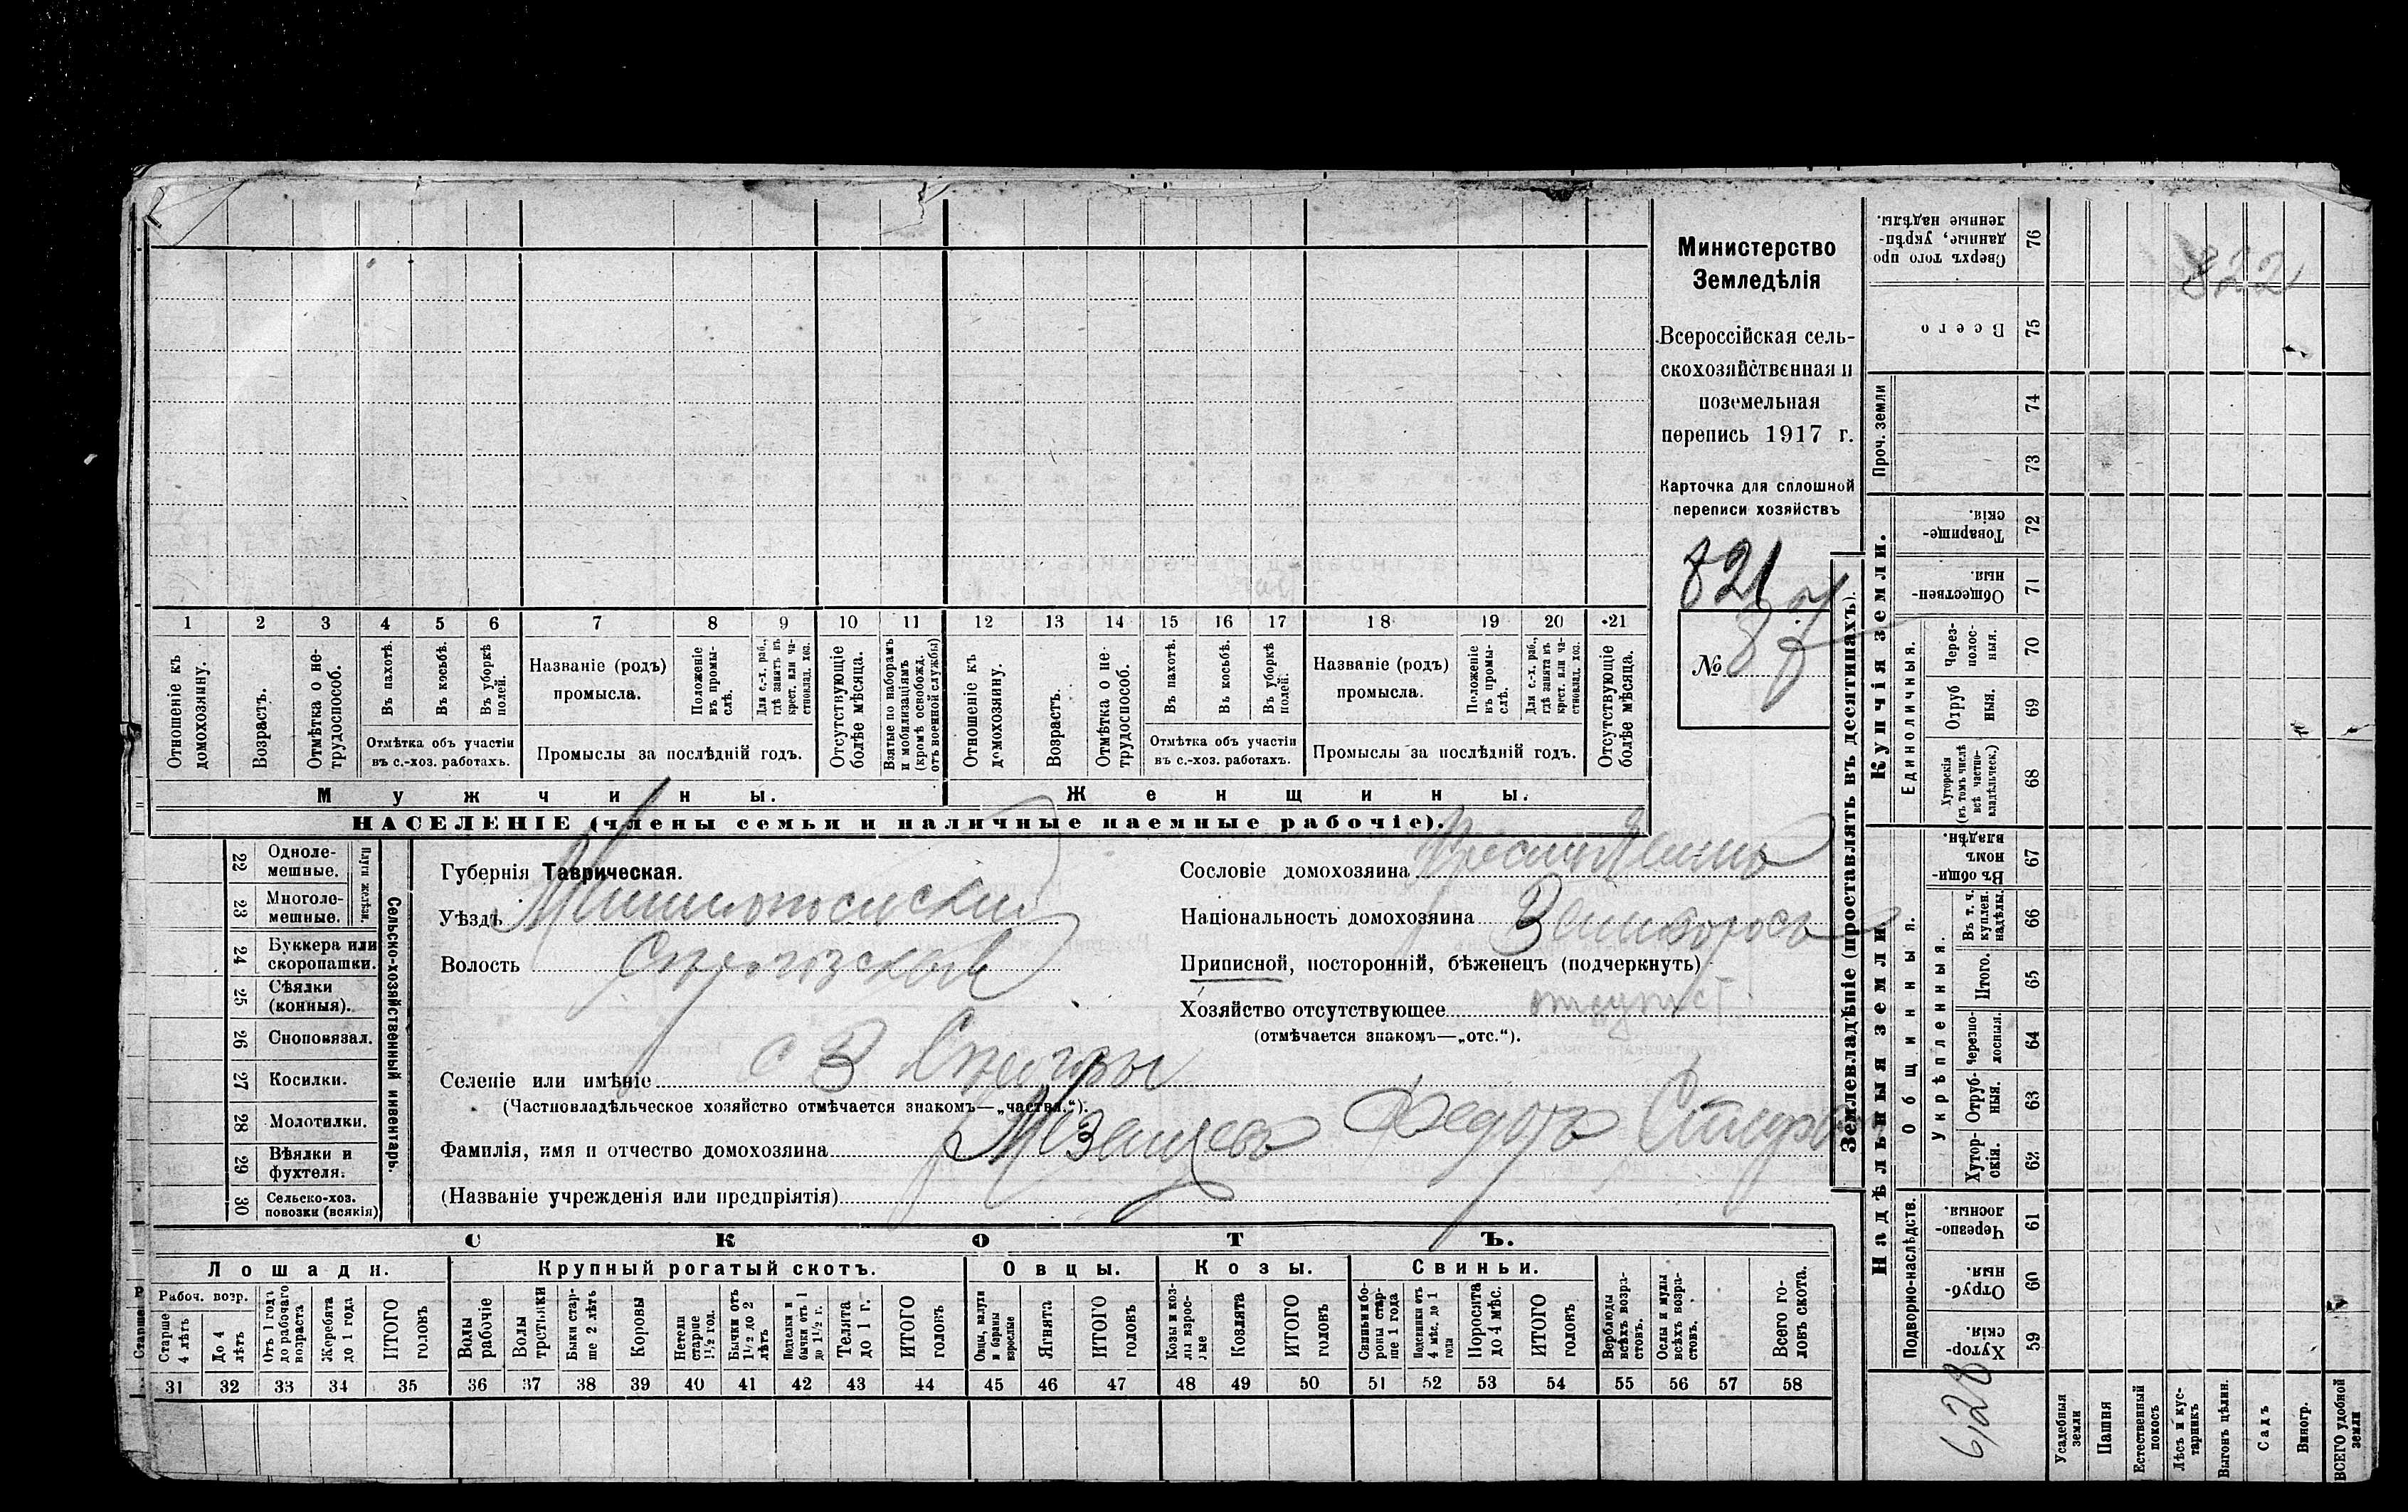 Министерство
Земледѣлія
Всероссійская сель-
скохозяйственная и
поземельная
перепись 1917 г.
Карточка для сплошной
переписи хозяйствъ
821
№ 87
1 2 3 4 5 6 7 8 9 10 11 12 13 14 15 16 17 18 19 20 21
Отношеніе къ домохозяину.
Возрастъ.
Отмѣтка о не-трудоспособ.
Въ пахотѣ.
Въ косьбѣ.
Въ уборкѣ полей.
Отмѣтка объ участіи
въ с.-хоз. работахъ.
Названіе (родъ)
промысла.
Положеніе въ промы-слѣ.
Для с.-х. раб., гдѣ занятъ въ крест. или ча-стновлад. хоз.
Промыслы за послѣдній годъ.
Отсутствующіе болѣе мѣсяца.
Взятые по наборамъ и мобилизаціямъ (кромѣ освобожд. отъ военной службы)
Отношеніе къ домохозяину.
Возрастъ.
Отмѣтка о не-трудоспособ.
Въ пахотѣ.
Въ косьбѣ.
Въ уборкѣ полей.
Отмѣтка объ участіи
въ с.-хоз. работахъ.
Названіе (родъ)
промысла.
Положеніе въ промы-слѣ.
Для с.-х. раб., гдѣ занята въ крест. или ча-стновлад. хоз.
Промыслы за послѣдній годъ.
Отсутствующіе болѣе мѣсяца.
Мужчины.
Женщины.
НАСЕЛЕНІЕ (члены семьи и наличные наемные рабочіе).
Сельско-хозяйственный инвентарь.
Плуги желѣзн.
22 Одноле-мешные.
23 Многоле-мешные.
24 Буккера или скоропашки.
25 Сѣялки (конныя).
26 Сноповязал.
27 Косилки.
28 Молотилки.
29 Вѣялки и фухтеля.
30 Сельско-хоз. повозки (всякія)
Губернія Таврическая.
Уѣздъ
Волость
Селеніе или имѣніе с 3
(Частновладѣльческое хозяйство отмѣчается знакомъ—„частвл.“).
Фамилія, имя и отчество домохозяина Федотъ
(Названіе учрежденія или предпріятія)
Сословіе домохозяина
Національность домохозяина
Приписной, посторонній, бѣженецъ (подчеркнуть)
Хозяйство отсутствующее
(отмѣчается знакомъ—„отс.“).
СКОТЪ.
Лошади.
Крупный рогатый скотъ.
Овцы.
Козы.
Свиньи.
Рабоч. возр.
Старше 4 лѣтъ
До 4 лѣтъ
Отъ 1 года до рабочаго возраста
Жеребята до 1 года
ИТОГО головъ
Волы рабочіе
Волы
Быки стар-ше 2 лѣтъ
Коровы
Нетели старше 1½ год.
Бычки отъ 1½ до 2 лѣтъ
Телята до 1 г.
ИТОГО головъ
Овцы, валухи и бараны взрослые
Ягнята
ИТОГО головъ
Козы и коз-лы взрос-лые
Козлята
ИТОГО головъ
Свиньи и бо-ровы стар-ше 1 года
Подсвинки отъ 4 мѣс. до 1 года
Поросята до 4 мѣс.
ИТОГО головъ
Верблюды всѣхъ возра-стовъ.
Ослы и мулы всѣхъ возра-стовъ.
Всего го-ловъ скота.
31 32 33 34 35 36 37 38 39 40 41 42 43 44 45 46 47 48 49 50 51 52 53 54 55 56 57 58
Землевладѣніе (проставлять въ десятинахъ).
Надѣльныя земли.
Купчія земли.
Проч. земли
822
Сверхъ того про-данные, укрѣп-ленные надѣлы. 76
Всего 75
74
73
Товарище-скія. 72
Обществен-ныя 71
Единоличныя.
Через-полос-ныя. 70
Отруб-ныя. 69
Хуторскія (въ томъ числѣ всѣ частно-владѣльческ.) 68
Общинныя.
Въ общин-номъ владѣн. 67
Укрѣпленныя.
Въ т. ч. куплен. надѣлы. 66
Итого. 65
Черезпо-лосныя. 64
Отруб-ныя. 63
Хутор-скія. 62
Подворно-наслѣдств.
Черезпо-лосныя. 61
Отруб-ныя. 60
Хутор-скія. 59
628
Усадебныя земли
Пашня
Естественный покосъ
Лѣсъ и кус-тарникъ
Выгонъ цѣлин.
Садъ
Виногр.
ВСЕГО удобной земли